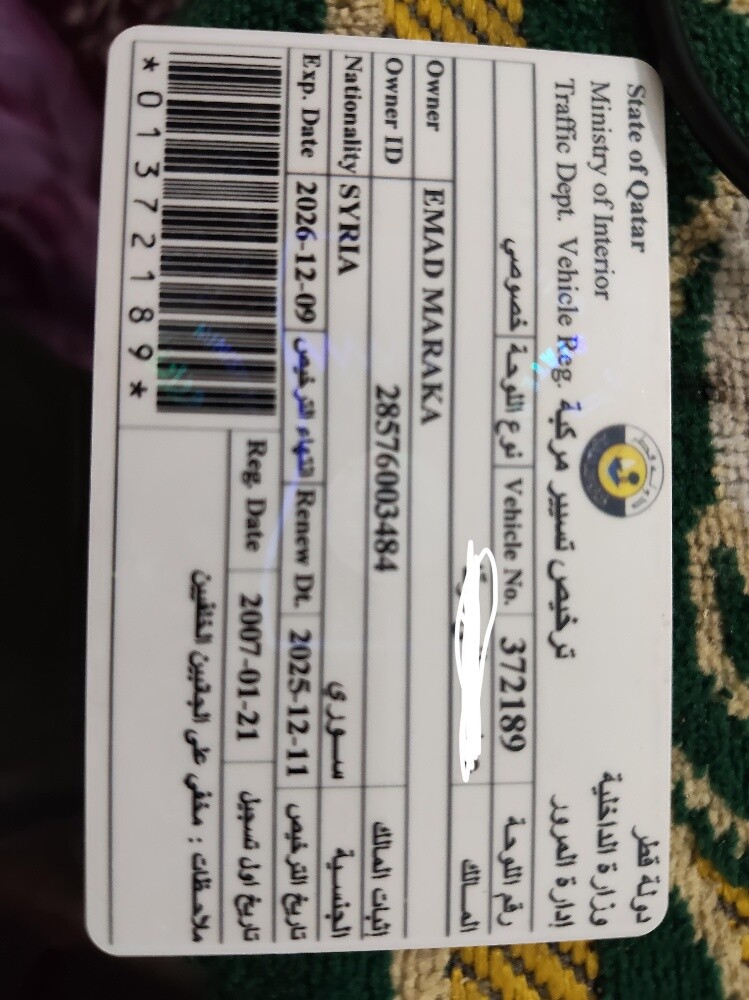 State of Qatar
دولة قطر
Ministry of Interior
وزارة الداخلية
Traffic Dept. Vehicle Reg. ترخيص تسيير مركبة إدارة المرور
خصوصي نوع اللوحة Vehicle No. 372189 رقم اللوحة
المالك
Owner EMAD MARAKA
Owner ID 28576003484 اثبات المالك
Nationality SYRIA سوري الجنسية
Exp. Date 2026-12-09 انتهاء الترخيص Renew Dt. 2025-12-11 تاريخ الترخيص
Reg. Date 2007-01-21 تاريخ اول تسجيل
ملاحظات : مخفي على الجنبين الخلفيين
*01372189*